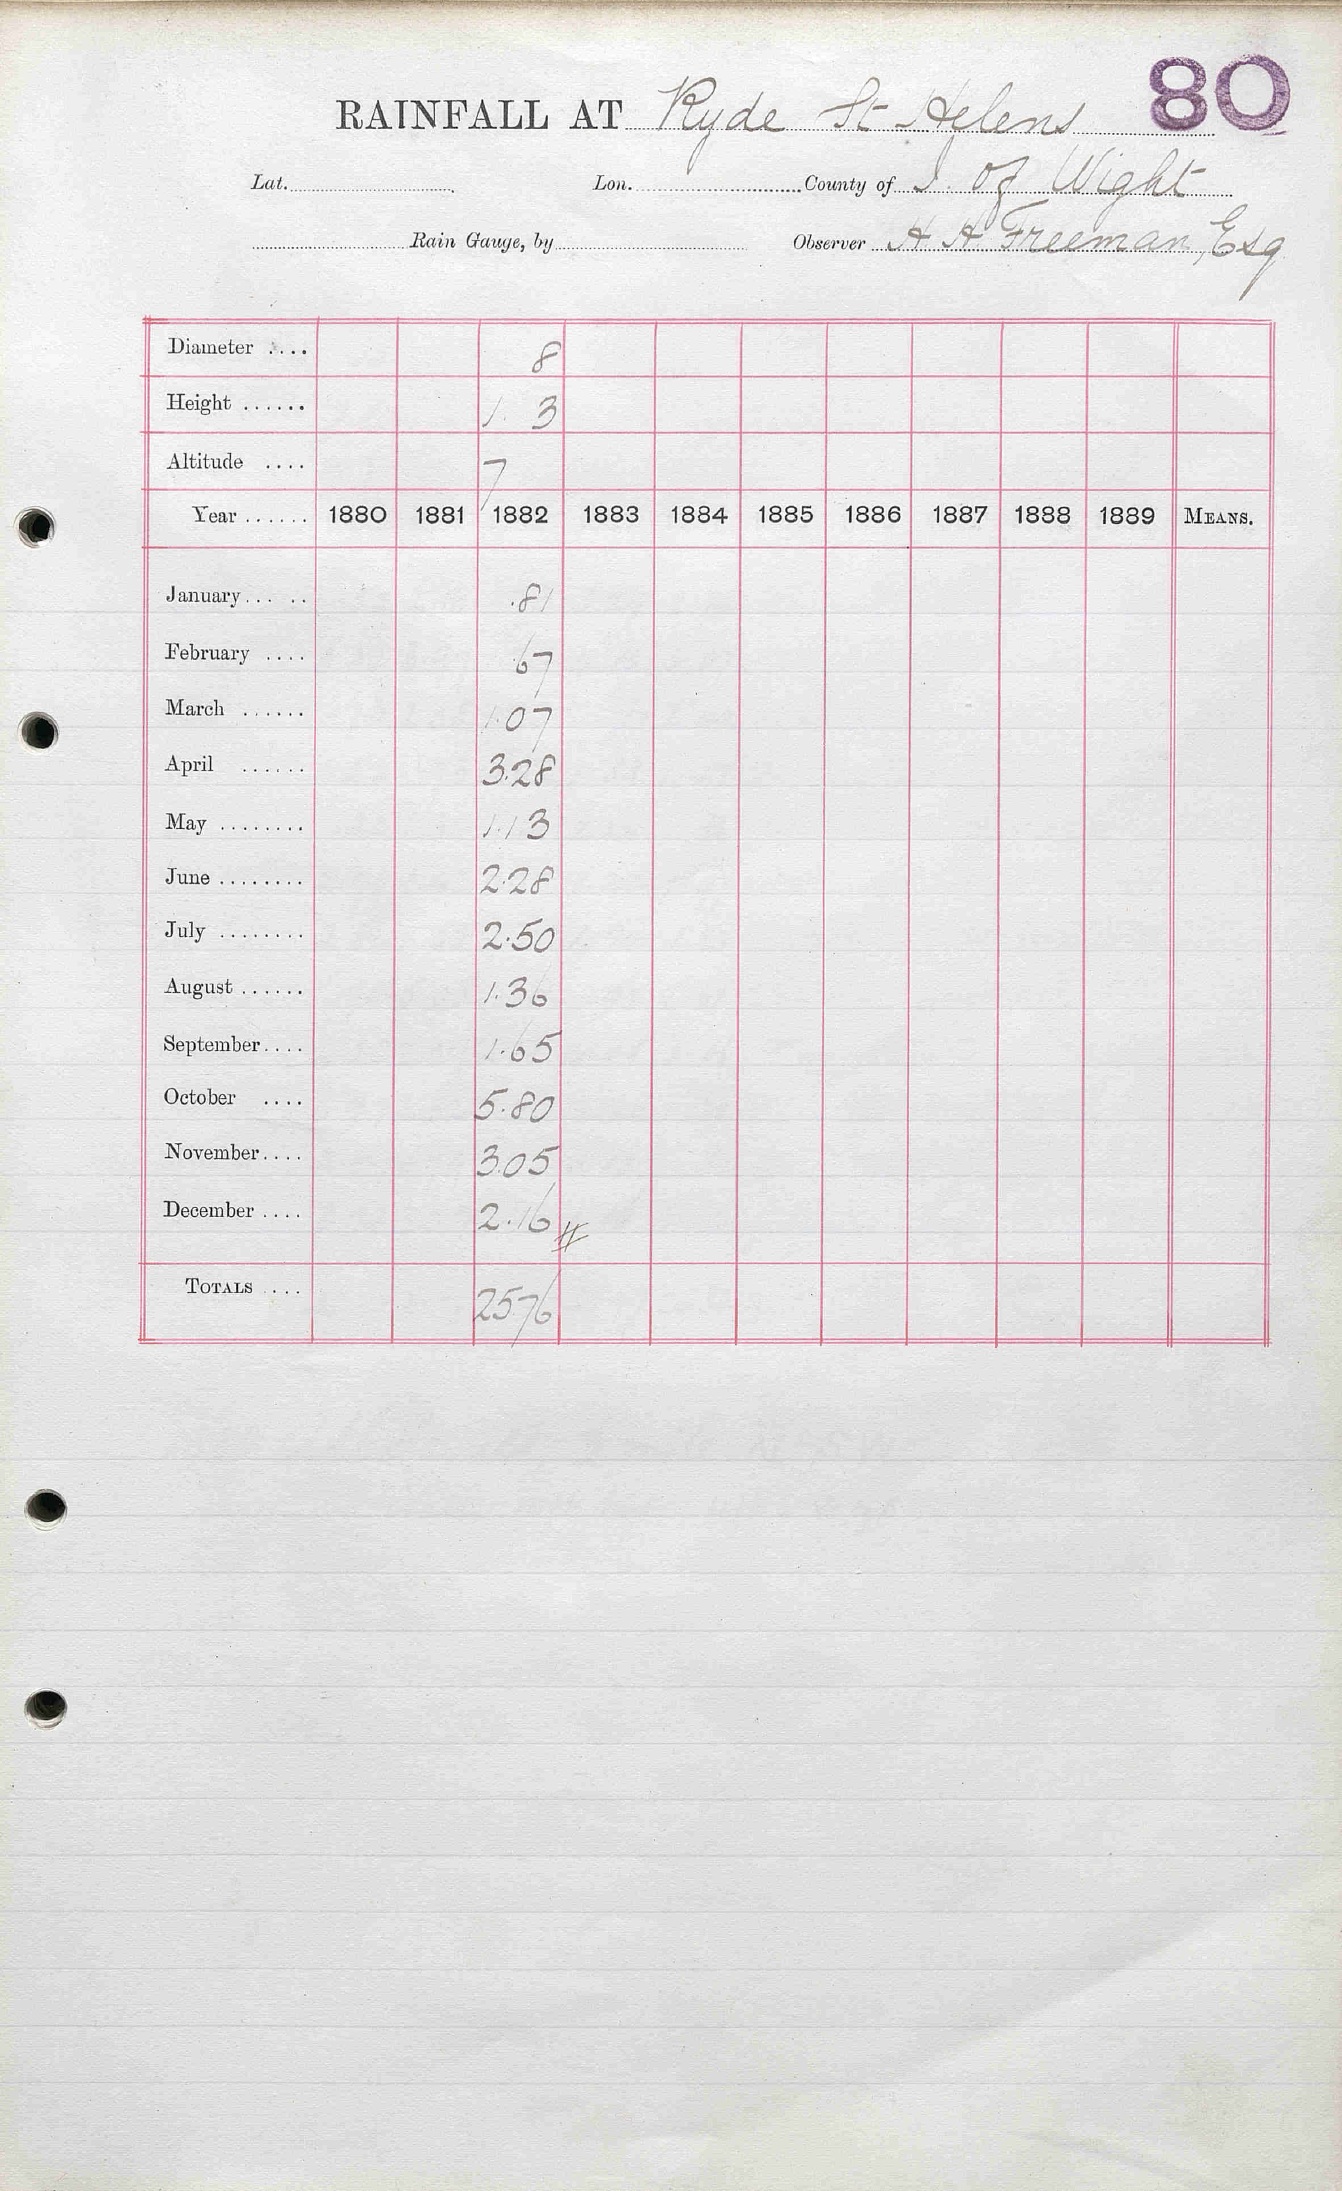 80
RAINFALL AT Ryde St Helens
Lat. Lon. County of I. of Wight
Rain Gauge, by Observer H A Freeman, Esq
Diameter .... 8
Height ...... 1. 3
Altitude .... 7
Year ...... 1880 1881 1882 1883 1884 1885 1886 1887 1888 1889 MEANS.
January ... .. .81
February .... .67
March ...... 1.07
April ...... 3.28
May ........ 1.13
June ........ 2.28
July ........ 2.50
August ...... 1.36
September .... 1.65
October .... 5.80
November .... 3.05
December .... 2.16 #
TOTALS .... 25.76